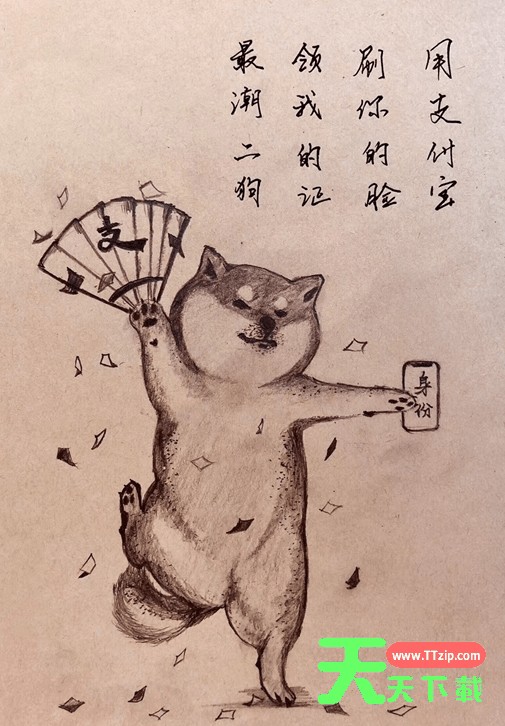 用支付宝
刷你的脸
领我的证
最潮二狗
支
身份
天天下载
www.TTzip.com